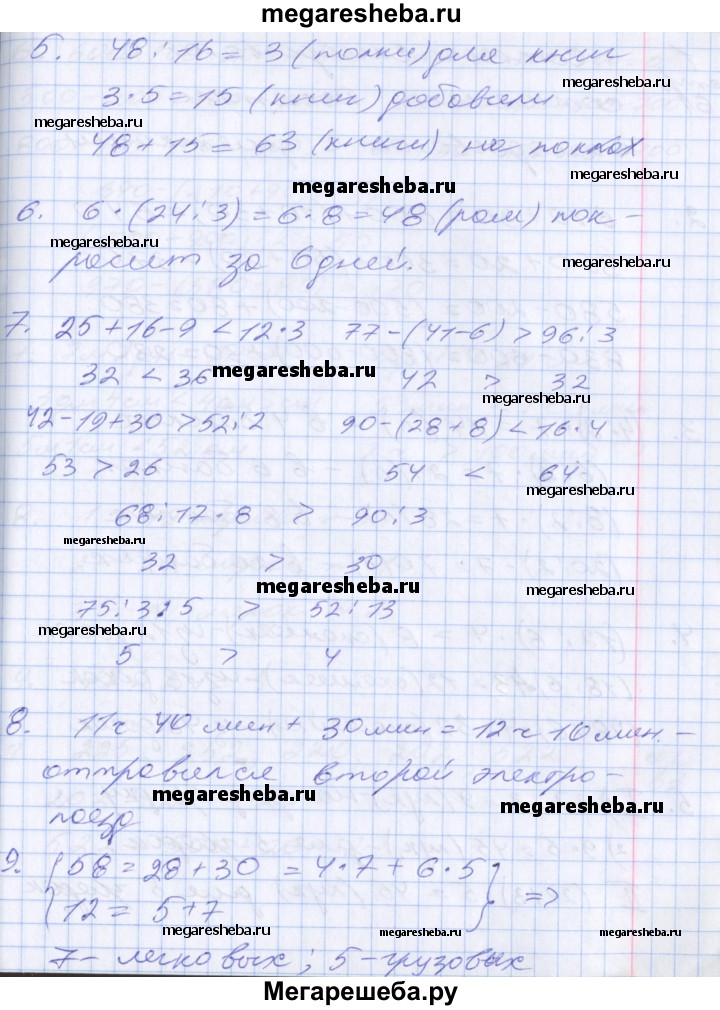 megaresheba.ru
5. 48:16=3 (полки) для книг
megaresheba.ru
3·5=15 (книг) добавили
megaresheba.ru
48+15=63 (книги) на полках
megaresheba.ru
6. 6·(24:3)=6·8=48 (рам) пок-
megaresheba.ru
расит за 6 дней.
megaresheba.ru
7. 25+16-9<12·3 77-(41-6)>96:3
32 < 36 42 > 32
megaresheba.ru
megaresheba.ru
42-19+30>52:2 90-(28+8)<16·4
53>26 54 < 64
megaresheba.ru
68:17·8 > 90:3
megaresheba.ru
32 > 30
megaresheba.ru
megaresheba.ru
75:3:5 > 52:13
megaresheba.ru
5 > 4
8. 11ч 40 мин + 30 мин = 12ч 10 мин. -
отправился второй электро-
megaresheba.ru
megaresheba.ru
поезд
9. {58=28+30 =4·7+6·5
12= 5+7 } =>
megaresheba.ru
megaresheba.ru
7- легковых; 5-грузовых
Мегарешеба.ру